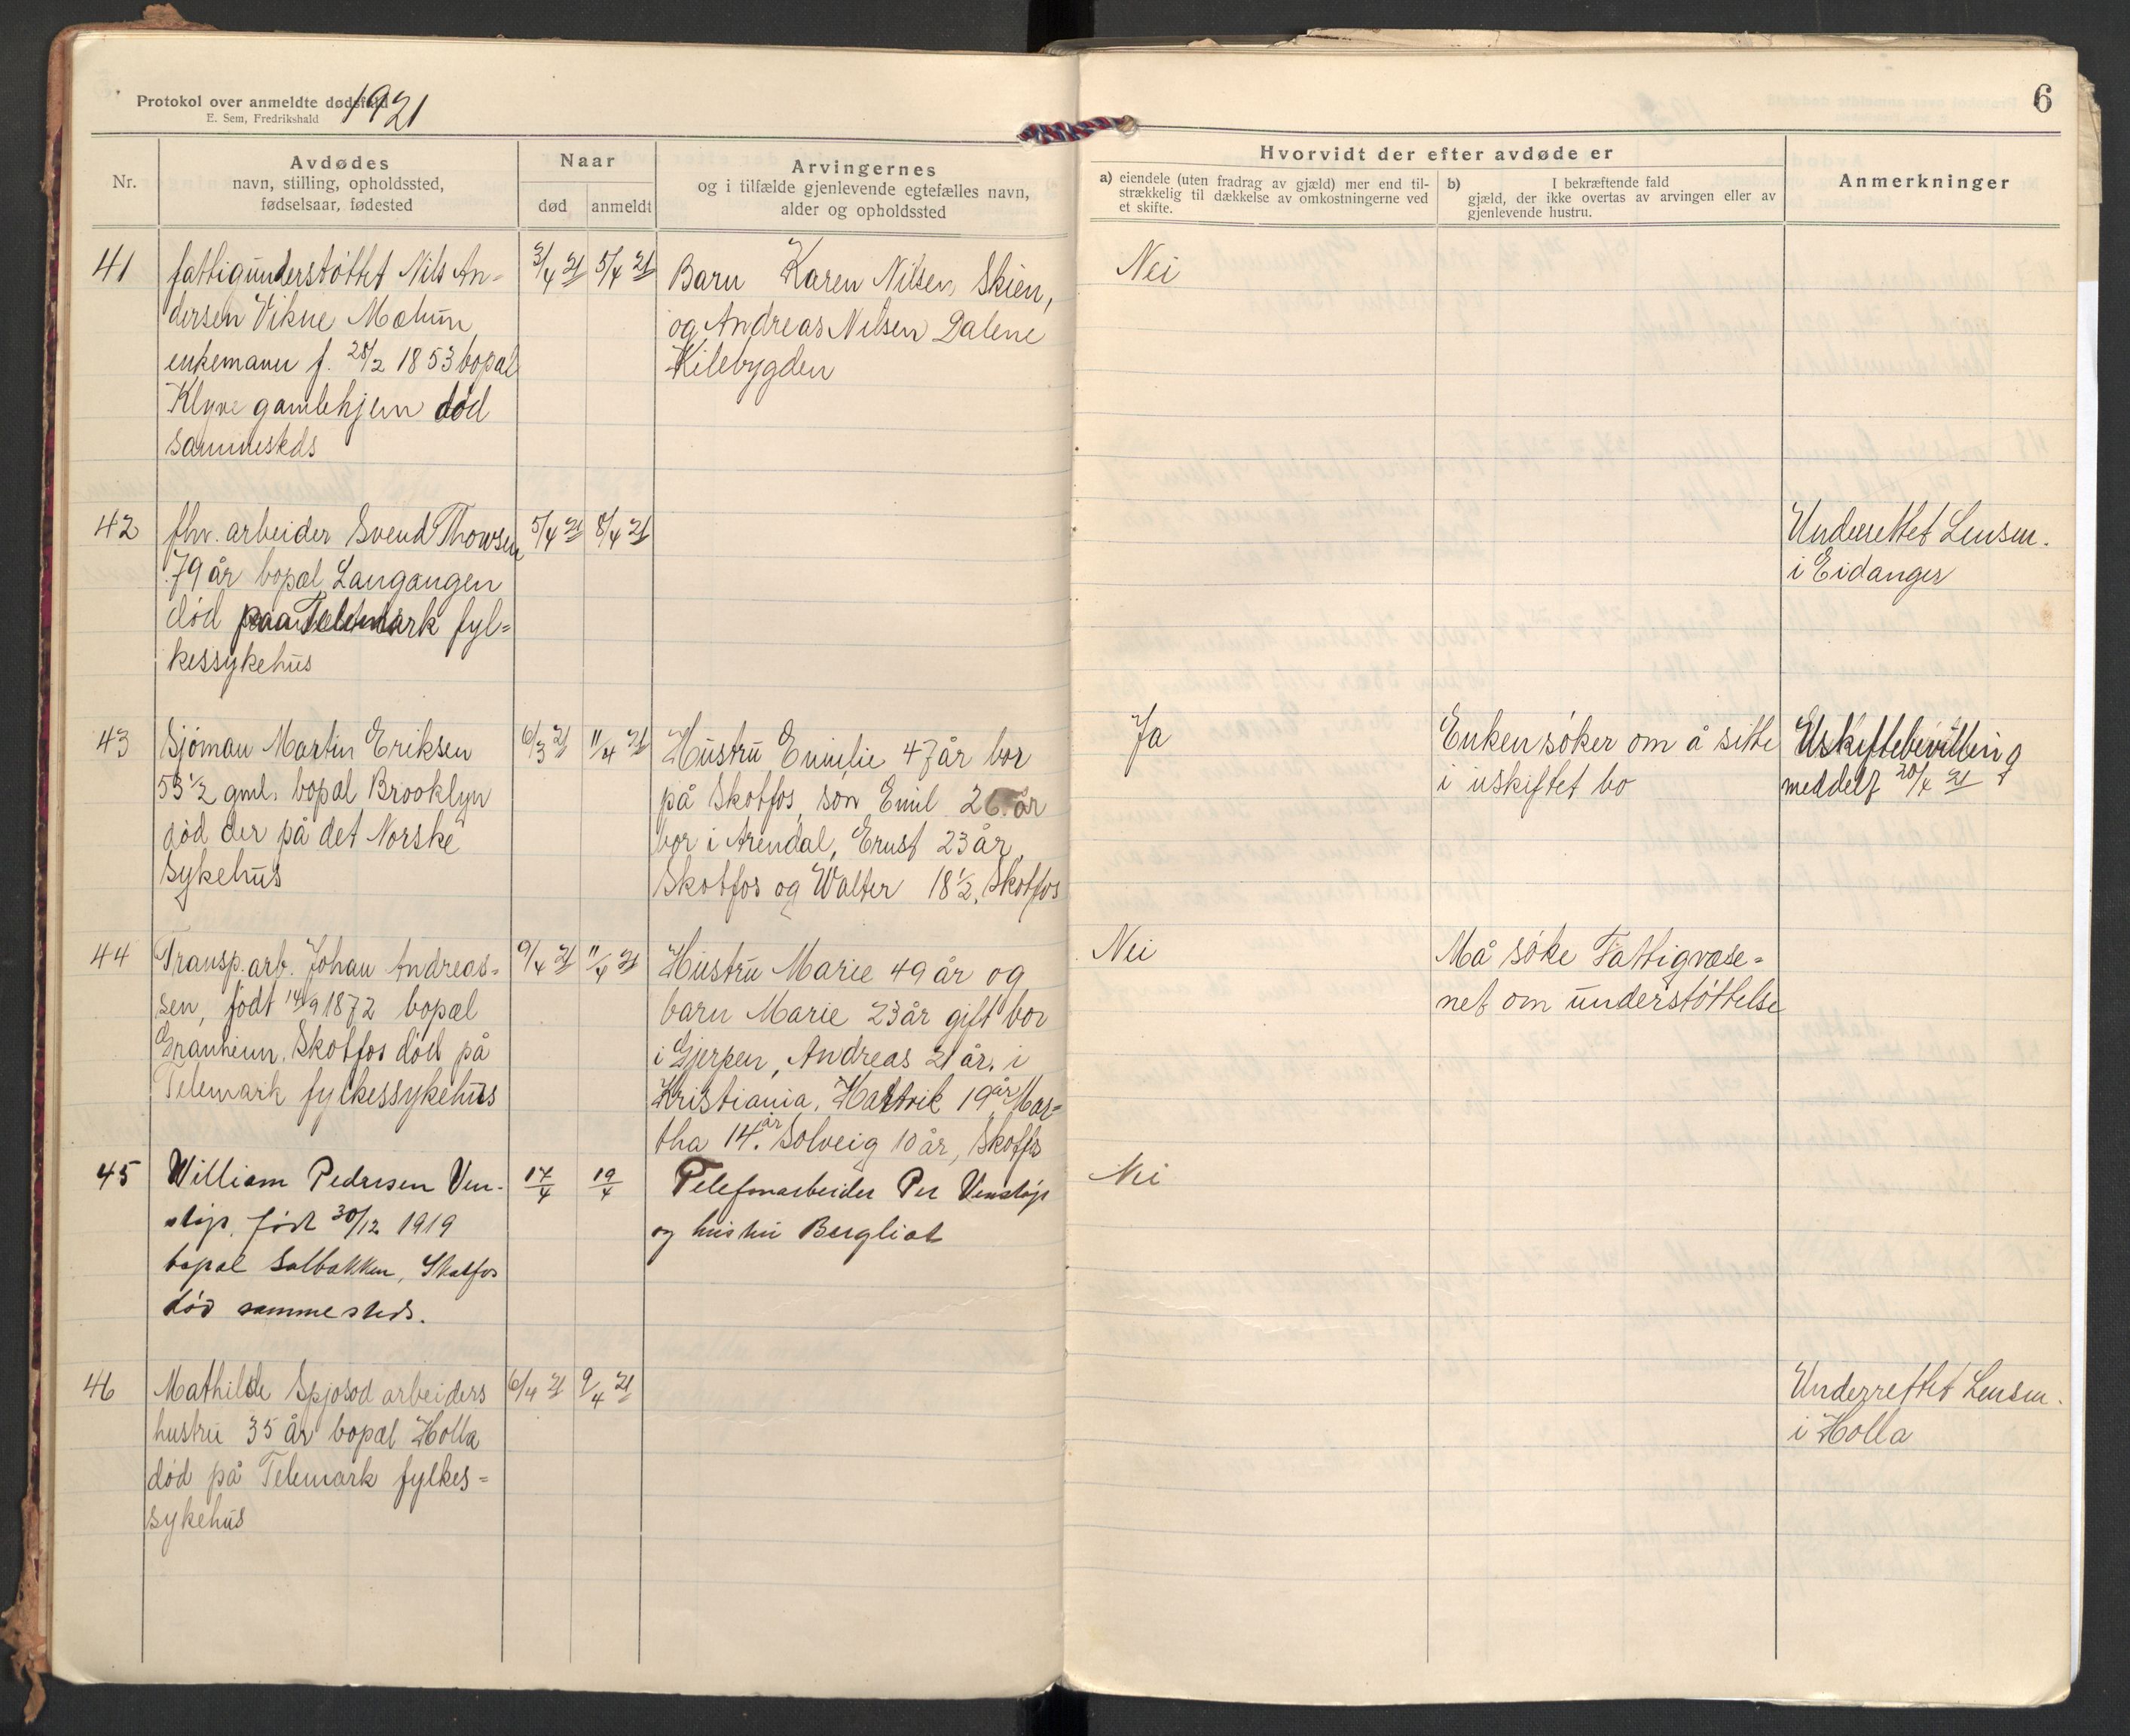 Protokol over anmeldte dødsfald 1921
E. Sem, Fredrikshald
6
Nr.
Avdødes
navn, stilling, opholdssted,
fødselsaar, fødested
Naar
død
anmeldt
Arvingernes
og i tilfælde gjenlevende egtefælles navn,
alder og opholdssted
Hvorvidt der efter avdøde er
a) eiendele (uten fradrag av gjæld) mer end til-
strækkelig til dækkelse av omkostningerne ved
et skifte.
b) I bekræftende fald
gjæld, der ikke overtas av arvingen eller av
gjenlevende hustru.
Anmerkninger
41
fattigunderstøttet Nils An-
dersen Vikne Melum
enkemann f. 28/2 1853 bopæl
Klyve gamlehjem død
sammesteds
3/4 21
5/4 21
Barn Karen Nilsen Skien,
og Andreas Nilsen Dalene
Kilebygden
Nei
42
fhv. arbeider Svend Thowsen
79 år bopæl Langangen
død paa Telemark fyl=
kessykehus
5/4 21
8/4 21
Underrettet Lensm.
i Eidanger
43
Sjöman Martin Eriksen
53 1/2 gml. bopæl Brooklyn
död der på det Norske
sykehus
6/3 21
11/4 21
Hustru Emilie 47 år bor
på Skotfos, sön Emil 26 år
bor i Arendal, Ernst 23 år,
Skotfos og Walter 18 1/2, Skotfos
Ja
Enken söker om å sitte
i uskiftet bo
Uskiftebevilling
meddelt 20/4 21
44
Transp.arb. Johan Andreas-
sen, födt 14/9 1872 bopæl
Granheim, Skotfos död på
Telemark fylkessykehus
9/4 21
11/4 21
Hustru Marie 49 år og
barn Marie 23 år gift bor
i Gjerpen, Andreas 21 år, i
Kristiania, Hartvik 19 år Mar=
tha 14 år. Solveig 10 år, Skotfos
Nei
Må söke Fattigvæse-
net om understöttelse
45
William Pedersen Ven-
støp, født 30/12 1919
bopæl Solbakken, Skotfos
død sammesteds.
17/4
19/4
Telefonarbeider Per Venstøp
og hustru Bergliot
Nei
46
Mathilde Spjosod arbeiders
hustru 35 år bopæl Holla
död på Telemark fylkes=
sykehus
6/4 21
9/4 21
Underrettet Lensm.
i Holla